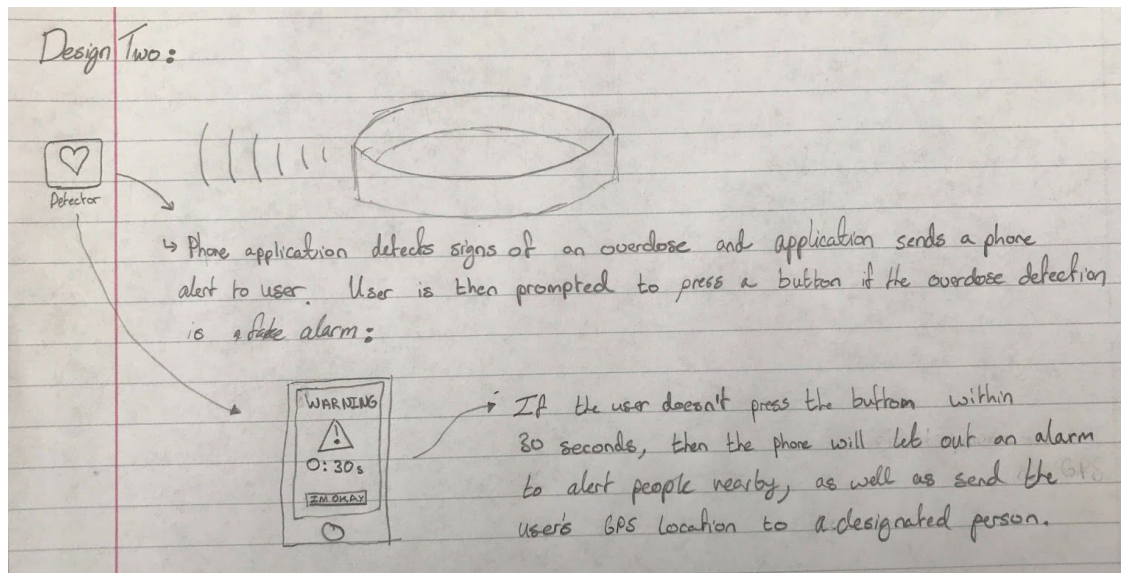 Design Two:
Detector
↳ Phone application detects signs of an overdose and application sends a phone
alert to user. User is then prompted to press a button if the overdose detection
is a fake alarm:
WARNING
0:30s
IM OKAY
If the user doesn't press the button within
30 seconds, then the phone will let out an alarm
to alert people nearby, as well as send the
user's GPS location to a designated person.